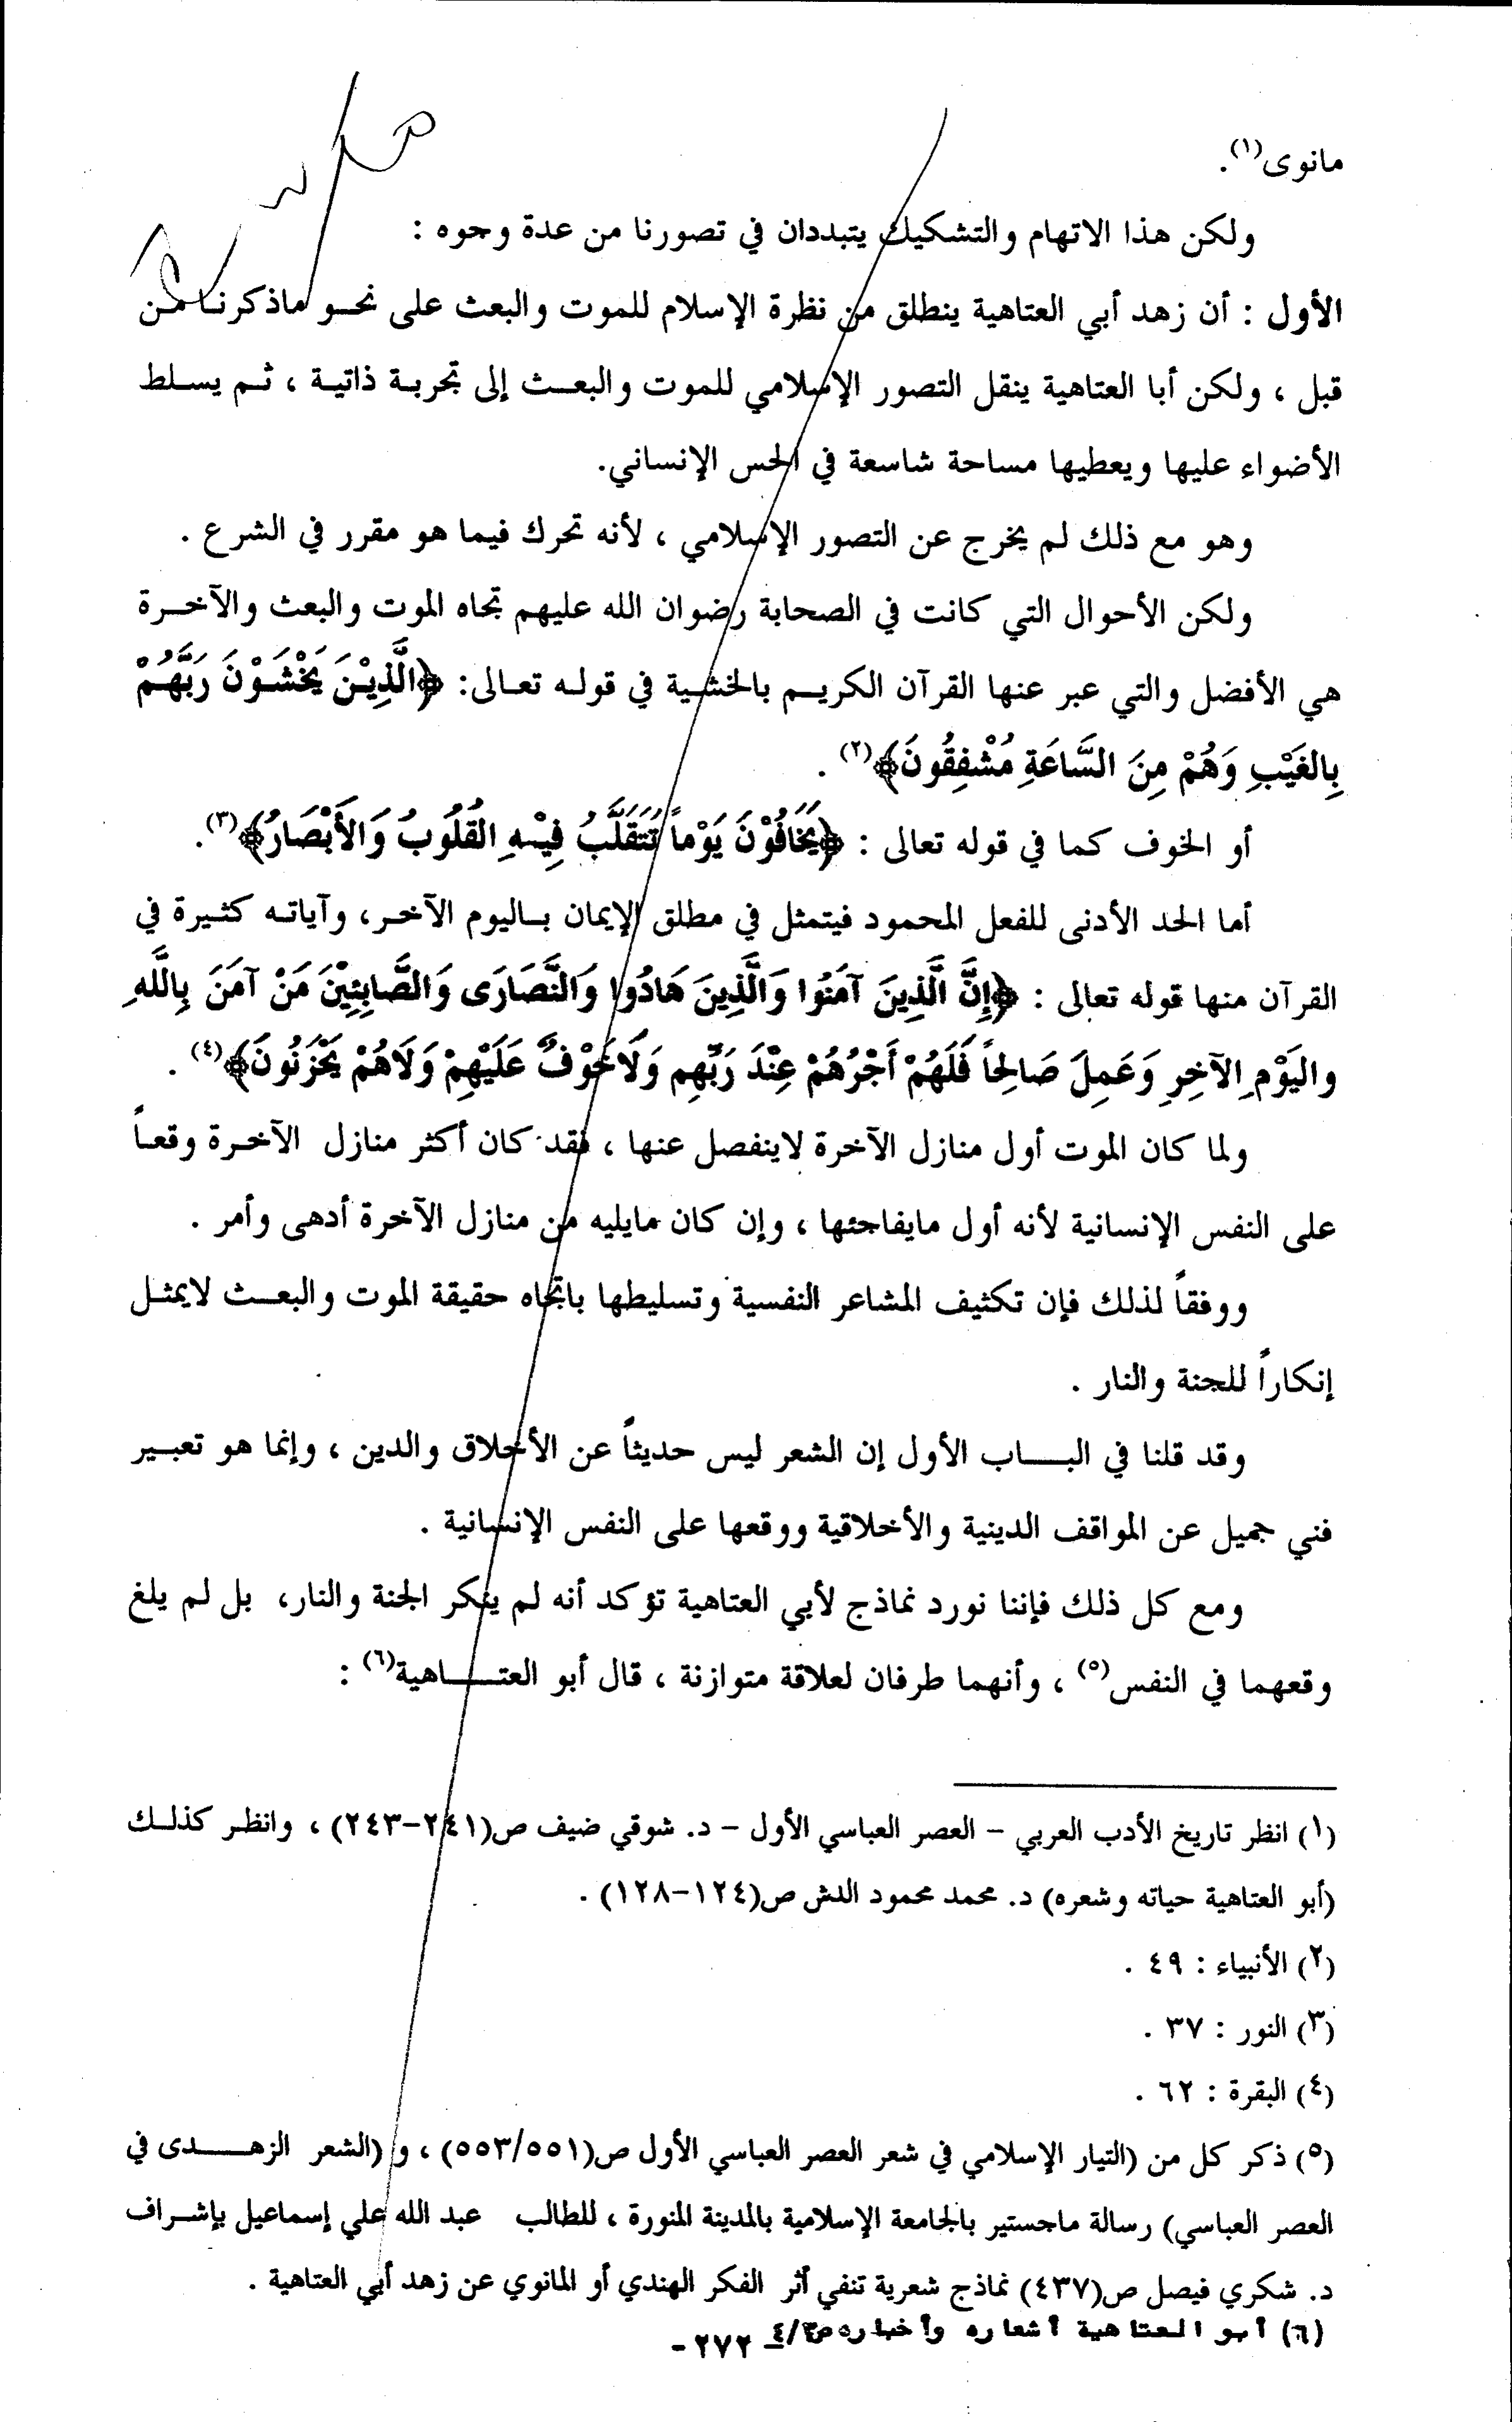 مانوى(١).
ولكن هذا الاتهام والتشكيك يتبددان في تصورنا من عدة وجوه :
الأول : أن زهد أبي العتاهية ينطلق من نظرة الإسلام للموت والبعث على نحو ماذكرنا من
قبل ، ولكن أبا العتاهية ينقل التصور الإسلامي للموت والبعث إلى تجربة ذاتية ، ثم يسلط
الأضواء عليها ويعطيها مساحة شاسعة في الحس الإنساني.
وهو مع ذلك لم يخرج عن التصور الإسلامي ، لأنه تحرك فيما هو مقرر في الشرع .
ولكن الأحوال التي كانت في الصحابة رضوان الله عليهم تجاه الموت والبعث والآخرة
هي الأفضل والتي عبر عنها القرآن الكريم بالخشية في قوله تعالى: ﴿الَّذِيْنَ يَخْشَوْنَ رَبَّهُمْ
بِالغَيْبِ وَهُمْ مِنَ السَّاعَةِ مُشْفِقُونَ﴾(٢) .
أو الخوف كما في قوله تعالى : ﴿يَخَافُوْنَ يَوْماً تَتَقَلَّبُ فِيْهِ القُلُوبُ وَالأَبْصَارُ﴾(٣).
أما الحد الأدنى للفعل المحمود فيتمثل في مطلق الإيمان باليوم الآخر، وآياته كثيرة في
القرآن منها قوله تعالى : ﴿إِنَّ الَّذِينَ آمَنُوا وَالَّذِينَ هَادُوا وَالنَّصَارَى وَالصَّابِئِيْنَ مَنْ آمَنَ بِاللَّهِ
واليَوْمِ الآخِرِ وَعَمِلَ صَالِحاً فَلَهُمْ أَجْرُهُمْ عِنْدَ رَبِّهِم وَلَاخَوْفٌ عَلَيْهِمْ وَلَاهُمْ يَحْزَنُونَ﴾(٤) .
ولما كان الموت أول منازل الآخرة لاينفصل عنها ، فقد كان أكثر منازل الآخرة وقعاً
على النفس الإنسانية لأنه أول مايفاجئها ، وإن كان مايليه من منازل الآخرة أدهى وأمر .
ووفقاً لذلك فإن تكثيف المشاعر النفسية وتسليطها باتجاه حقيقة الموت والبعث لايمثل
إنكاراً للجنة والنار .
وقد قلنا في الباب الأول إن الشعر ليس حديثاً عن الأخلاق والدين ، وإنما هو تعبير
فني جميل عن المواقف الدينية والأخلاقية ووقعها على النفس الإنسانية .
ومع كل ذلك فإننا نورد نماذج لأبي العتاهية تؤكد أنه لم ينكر الجنة والنار، بل لم يلغ
وقعهما في النفس(٥) ، وأنهما طرفان لعلاقة متوازنة ، قال أبو العتاهية(٦) :
(١) انظر تاريخ الأدب العربي – العصر العباسي الأول – د. شوقي ضيف ص(٢٤١-٢٤٣) ، وانظر كذلك
(أبو العتاهية حياته وشعره) د. محمد محمود الدش ص(١٢٤-١٢٨) .
(٢) الأنبياء : ٤٩ .
(٣) النور : ٣٧ .
(٤) البقرة : ٦٢ .
(٥) ذكر كل من (التيار الإسلامي في شعر العصر العباسي الأول ص(٥٥٣/٥٥١) ، و (الشعر الزهدى في
العصر العباسي) رسالة ماجستير بالجامعة الإسلامية بالمدينة المنورة ، للطالب عبد الله علي إسماعيل بإشراف
د. شكري فيصل ص(٤٣٧) نماذج شعرية تنفي أثر الفكر الهندي أو المانوي عن زهد أبي العتاهية .
(٦) أبو العتاهية أشعاره وأخباره
٢٧٢ -